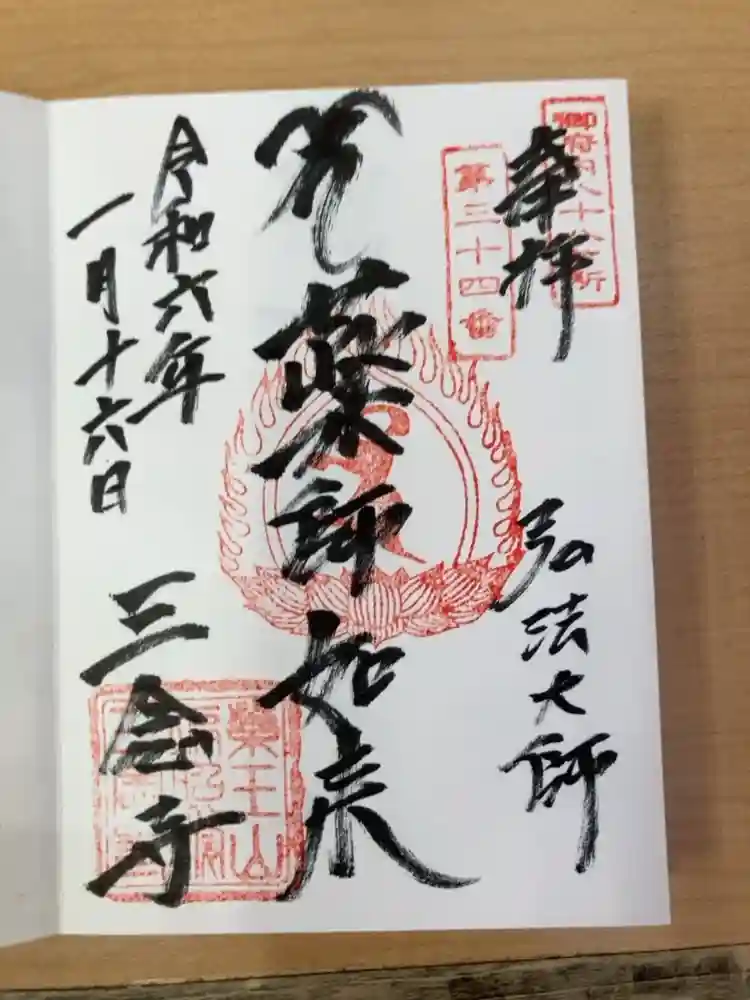 御府内八十八ヶ所
奉拝
第三十四番
弘法大師
薬師如来
令和六年
一月十六日
三念寺
薬王山